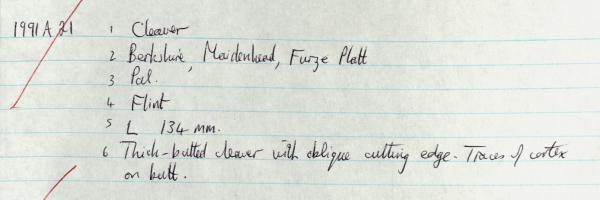 1991 A 21 1 Cleaver
2 Berkshire, Maidenhead, Furze Platt
3 Pal.
4 Flint
5 L 134 mm.
6 Thick-butted cleaver with oblique cutting edge. Traces of cortex
on butt.